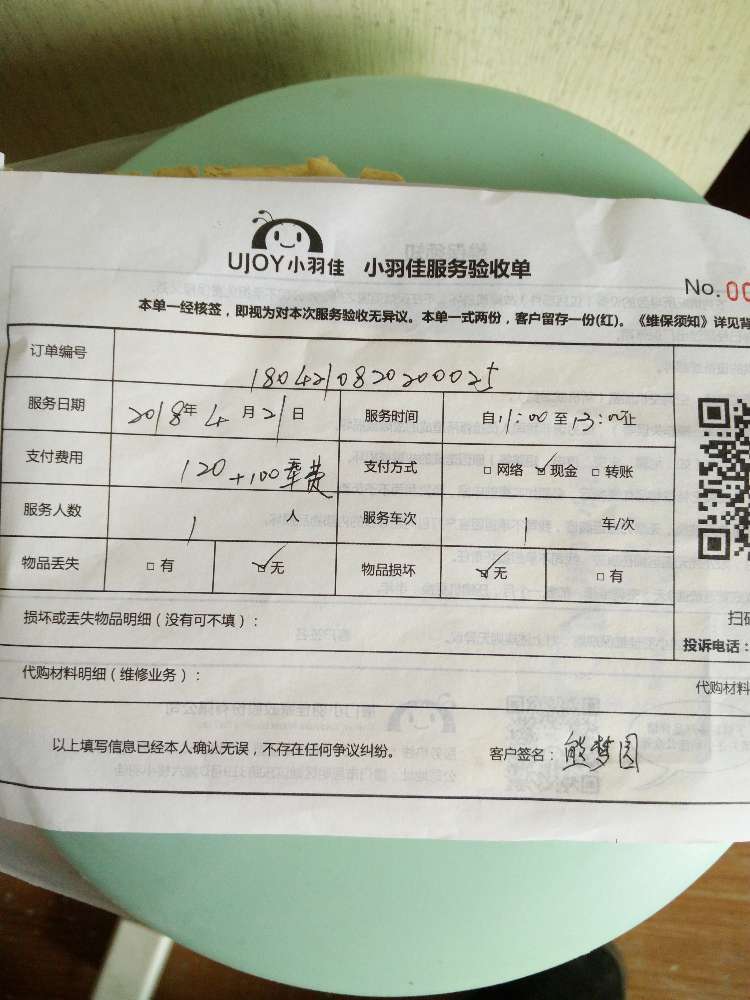 UJOY小羽佳 小羽佳服务验收单
No.00
本单一经核签，即视为对本次服务验收无异议。本单一式两份，客户留存一份(红)。《维保须知》详见背
订单编号 180421082020025
服务日期 2018年4月21日 服务时间 自11:00至13:00止
支付费用 120+100车费 支付方式 □网络 ☑现金 □转账
服务人数 1人 服务车次 1 车/次
物品丢失 □有 ☑无 物品损坏 ☑无 □有
损坏或丢失物品明细（没有可不填）：
扫码
投诉电话：
代购材料明细（维修业务）：
代购材料
以上填写信息已经本人确认无误，不存在任何争议纠纷。 客户签名：熊梦园